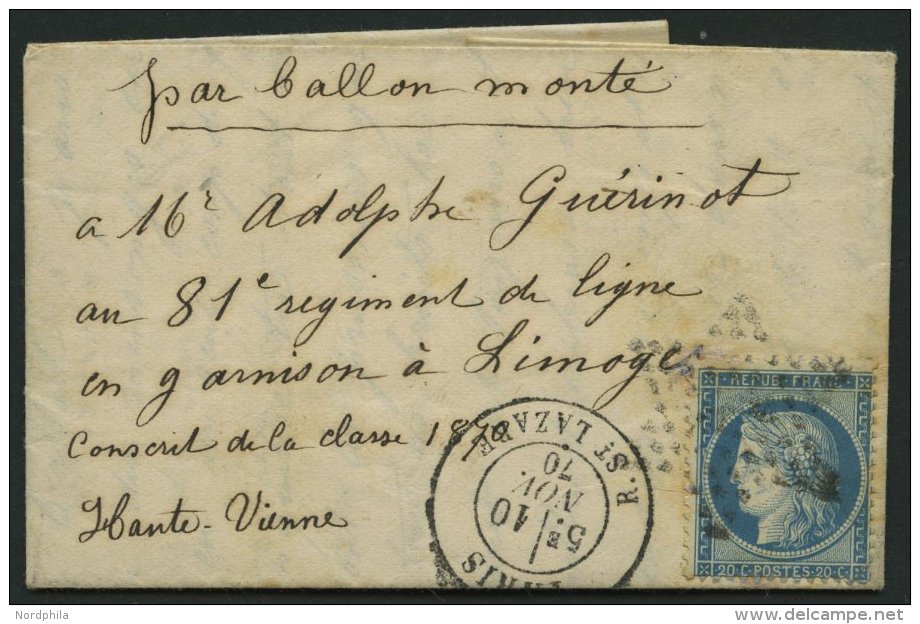 par ballon monté
a Mr Adolphe Guérinot
au 81e regiment de ligne
en garnison à Limoge
Conscrit de la classe 1870
Haute-Vienne
PARIS R. ST LAZARE
5E
10
NOV.
70
REPUB. FRANC.
20·C·POSTES·20·C·
Nordphila
www.delcampe.net